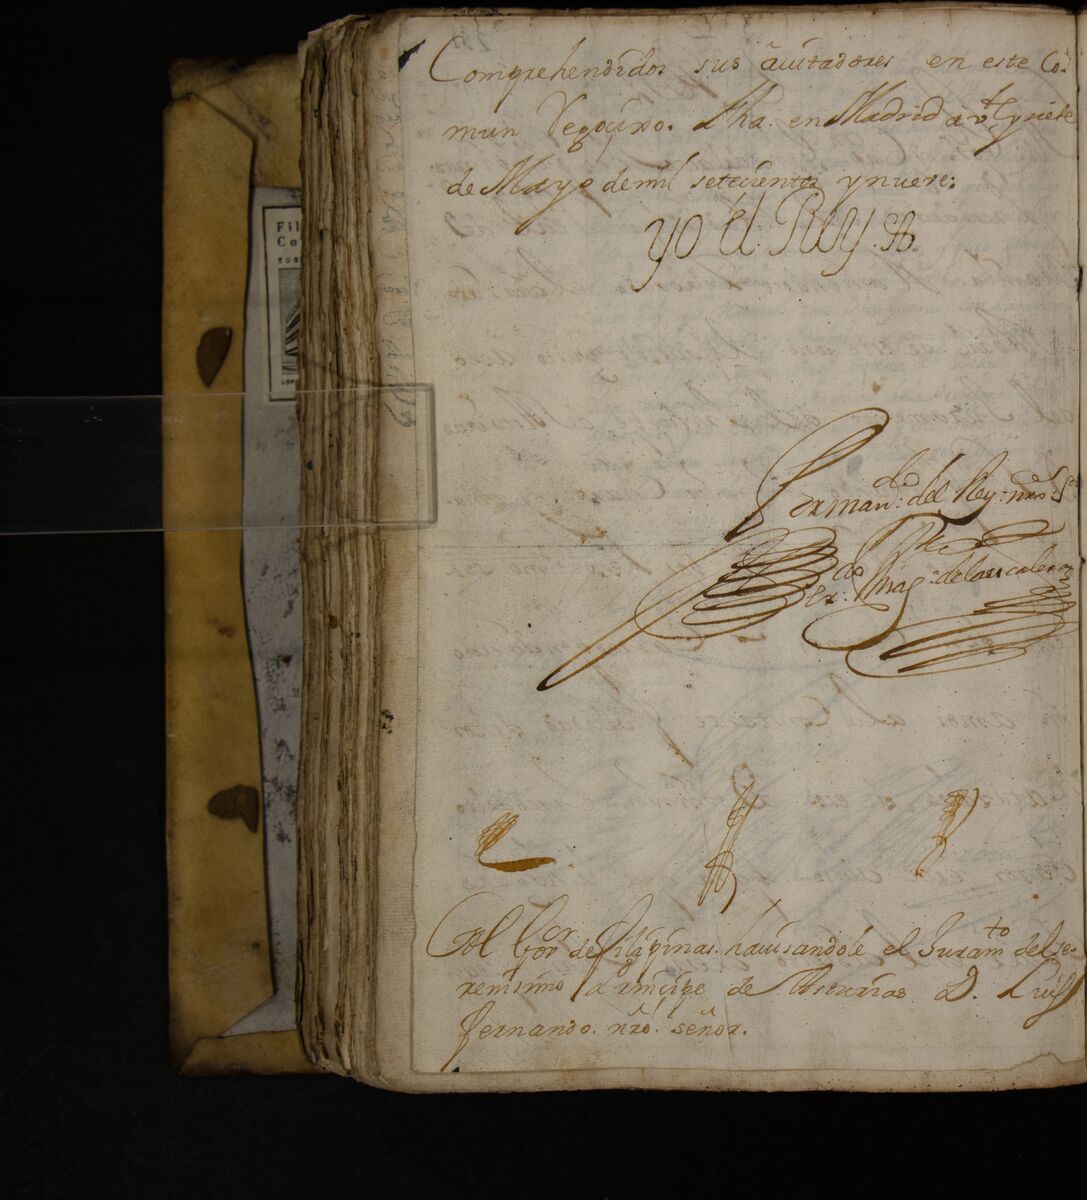 Comprehendidos sus auitadores en este Co-
mun Regocixo. fha. en Madrid á vte y siete
de Mayo de mil setecientos y nueue:
yo el Rey
Por mando. del Rey. nro. Sr.
de la escalera
Al Gor de filipinas. hauisandole el Juramto del se-
renisimo Principe de Asturias D. Luis
fernando. nro. señor.
Fil
Co